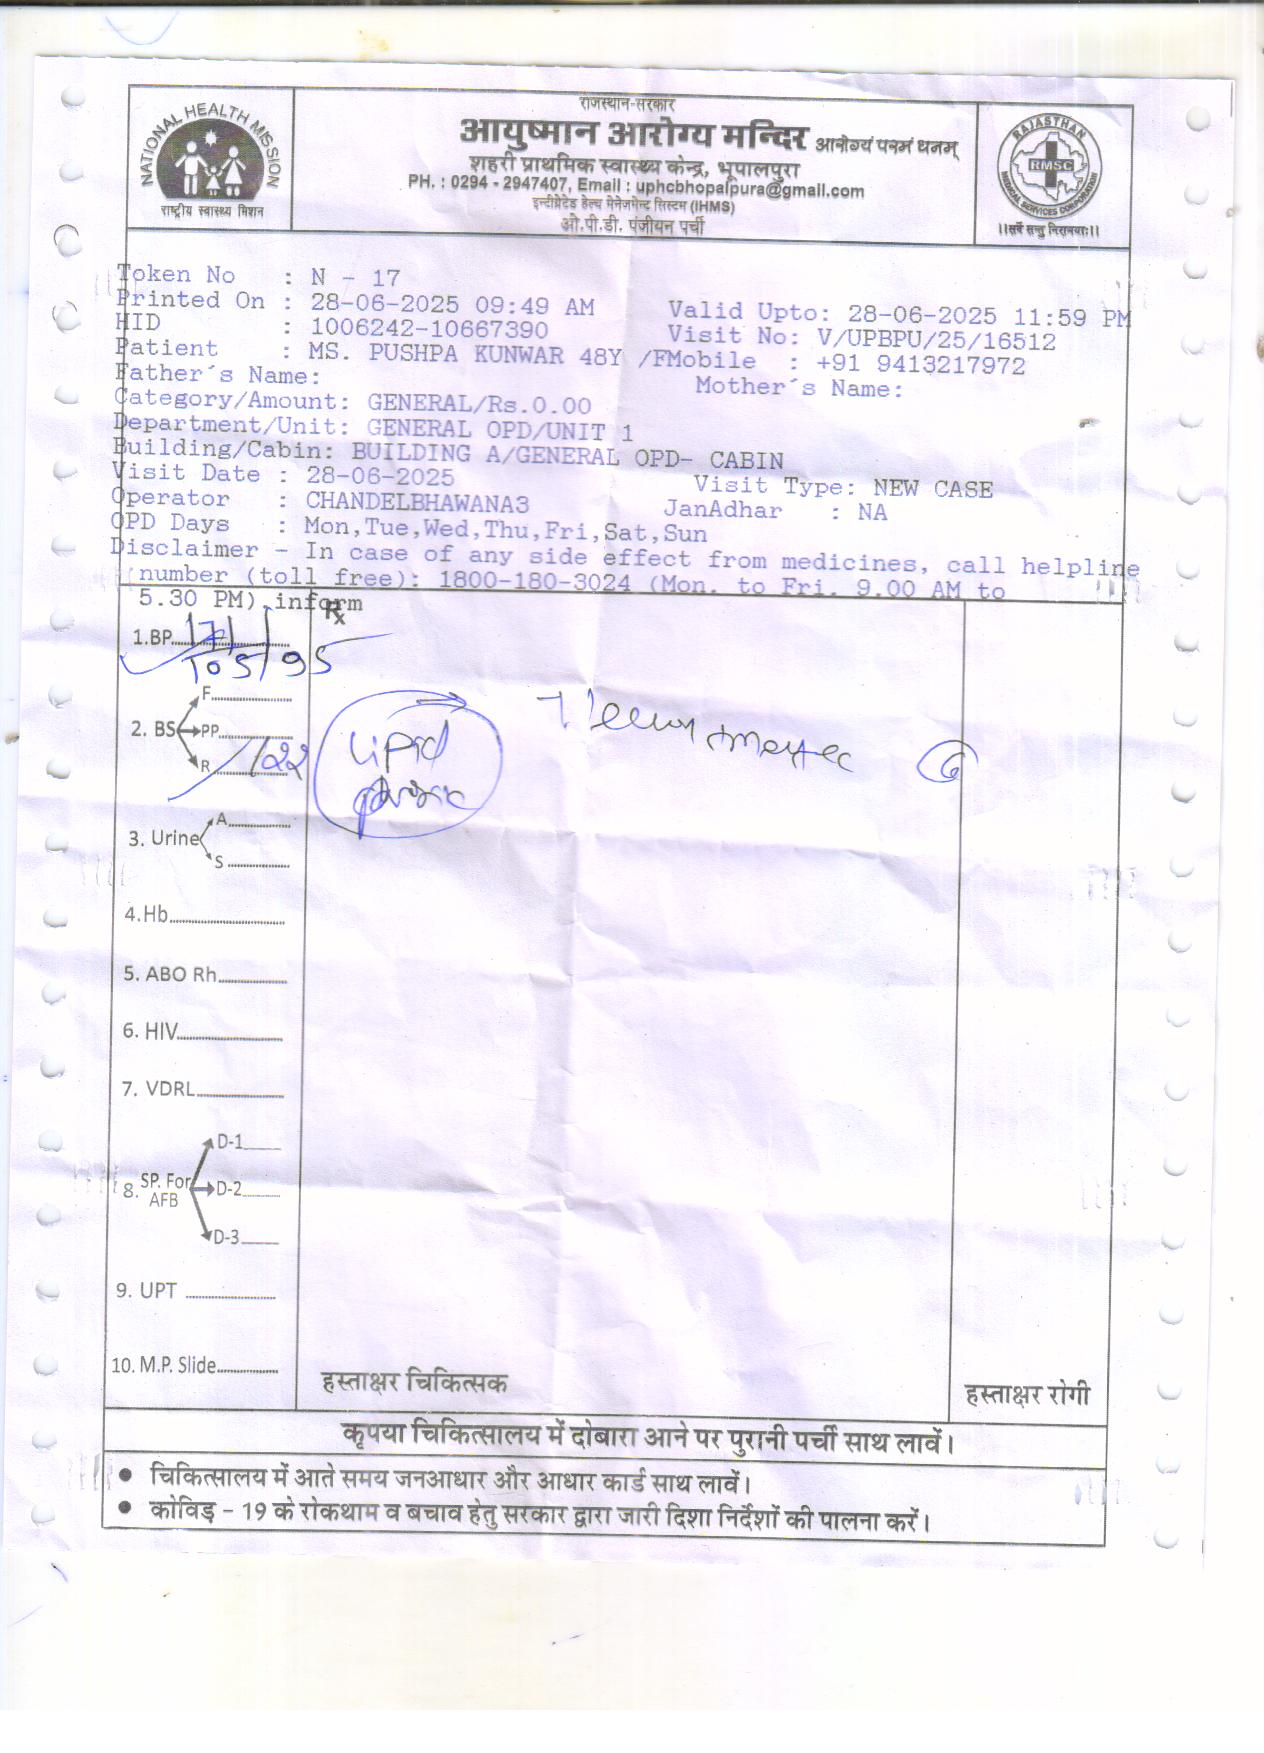 NATIONAL HEALTH MISSION
राष्ट्रीय स्वास्थ्य मिशन
राजस्थान-सरकार
आयुष्मान आरोग्य मन्दिर आरोग्यं परमं धनम्
शहरी प्राथमिक स्वास्थ्य केन्द्र, भूपालपुरा
PH. : 0294 - 2947407, Email : uphcbhopalpura@gmail.com
इन्टीग्रेटेड हेल्थ मेनेजमेन्ट सिस्टम (IHMS)
ओ.पी.डी. पंजीयन पर्ची
RAJASTHAN
RMSC
MEDICAL SERVICES CORPORATION
।।सर्वे सन्तु निरामयाः।।
Token No : N - 17
Printed On : 28-06-2025 09:49 AM Valid Upto: 28-06-2025 11:59 PM
HID : 1006242-10667390 Visit No: V/UPBPU/25/16512
Patient : MS. PUSHPA KUNWAR 48Y /FMobile : +91 9413217972
Father´s Name: Mother´s Name:
Category/Amount: GENERAL/Rs.0.00
Department/Unit: GENERAL OPD/UNIT 1
Building/Cabin: BUILDING A/GENERAL OPD- CABIN
Visit Date : 28-06-2025 Visit Type: NEW CASE
Operator : CHANDELBHAWANA3 JanAdhar : NA
OPD Days : Mon,Tue,Wed,Thu,Fri,Sat,Sun
Disclaimer - In case of any side effect from medicines, call helpline
number (toll free): 1800-180-3024 (Mon. to Fri. 9.00 AM to
5.30 PM), inform
Rx
1.BP 171
105/95
2. BS
F
PP
R 122
Lipid
3. Urine
A
S
4.Hb
5. ABO Rh
6. HIV
7. VDRL
8. SP. For AFB
D-1
D-2
D-3
9. UPT
10. M.P. Slide
हस्ताक्षर चिकित्सक
हस्ताक्षर रोगी
कृपया चिकित्सालय में दोबारा आने पर पुरानी पर्ची साथ लावें।
● चिकित्सालय में आते समय जनआधार और आधार कार्ड साथ लावें।
● कोविड़ - 19 के रोकथाम व बचाव हेतु सरकार द्वारा जारी दिशा निर्देशों की पालना करें।